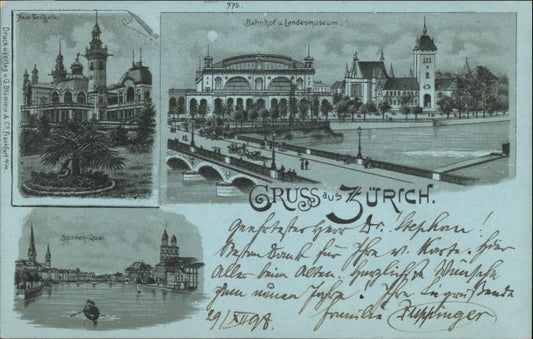 775.
Neue Tonhalle.
Bahnhof u. Landesmuseum.
Druck u. Verlag v. G. Blümlein & Co. Frankfurt a/M.
GRUSS aus ZÜRICH.
Sonnen-Quai.
Geehrtester Herr Dr. Stephan!
Besten Dank für Ihre w. Karte. Hier
Alles beim Alten. Herzlichste Wünsche
zum neuen Jahre. Ihre Sie grüssende
29/XII 98. Familie